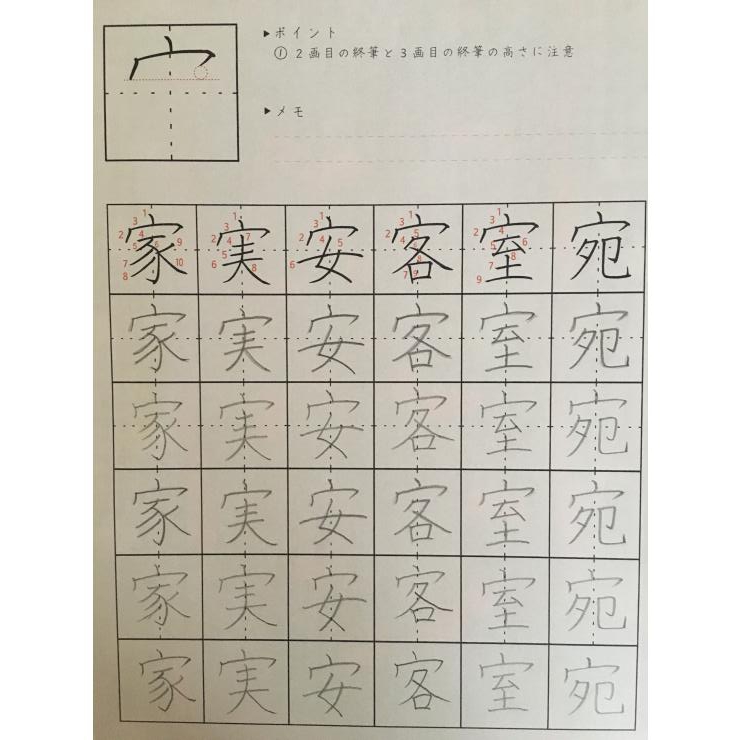 宀
▶ポイント
① 2画目の終筆と3画目の終筆の高さに注意
▶メモ
家 実 安 客 室 宛
家 実 安 客 室 宛
家 実 安 客 室 宛
家 実 安 客 室 宛
家 実 安 客 室 宛
家 実 安 客 室 宛